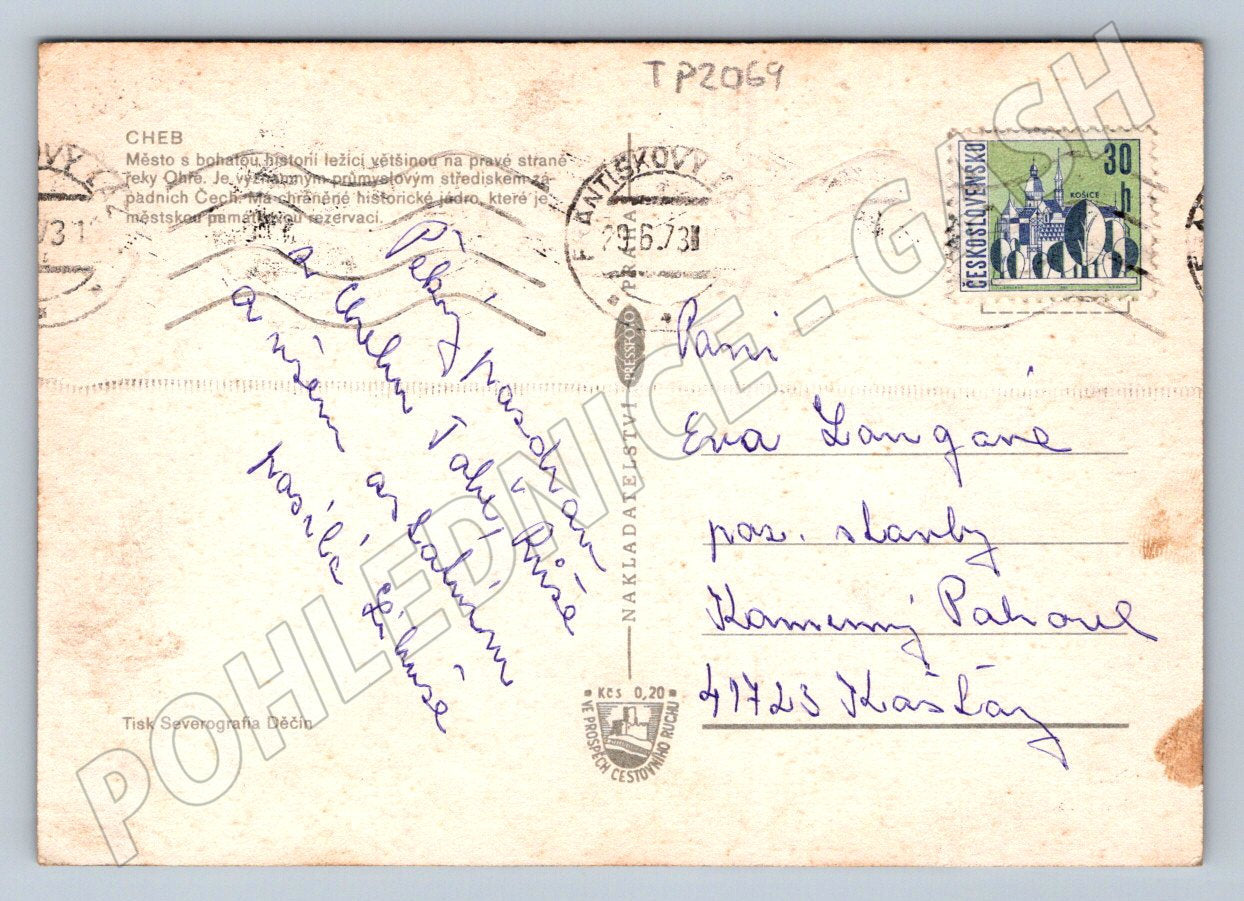 TP2069
CHEB
Město s bohatou historií ležící většinou na pravé straně
řeky Ohře. Je významným průmyslovým střediskem zá-
padních Čech. Má chráněné historické jádro, které je
městskou památkovou rezervací.
FRANTIŠKOVY
29.6.73
ČESKOSLOVENSKO
30
h
KOŠICE
Pěkný pozdrav
z Chebu
a všem
posílá
Paní
Eva
poz. stavby
Kamenný Pahorek
41723 Košťany
NAKLADATELSTVÍ PRESSFOTO PRAHA
Kčs 0,20
VE PROSPĚCH CESTOVNÍHO RUCHU
Tisk Severografia Děčín
POHLEDNICE - GASH